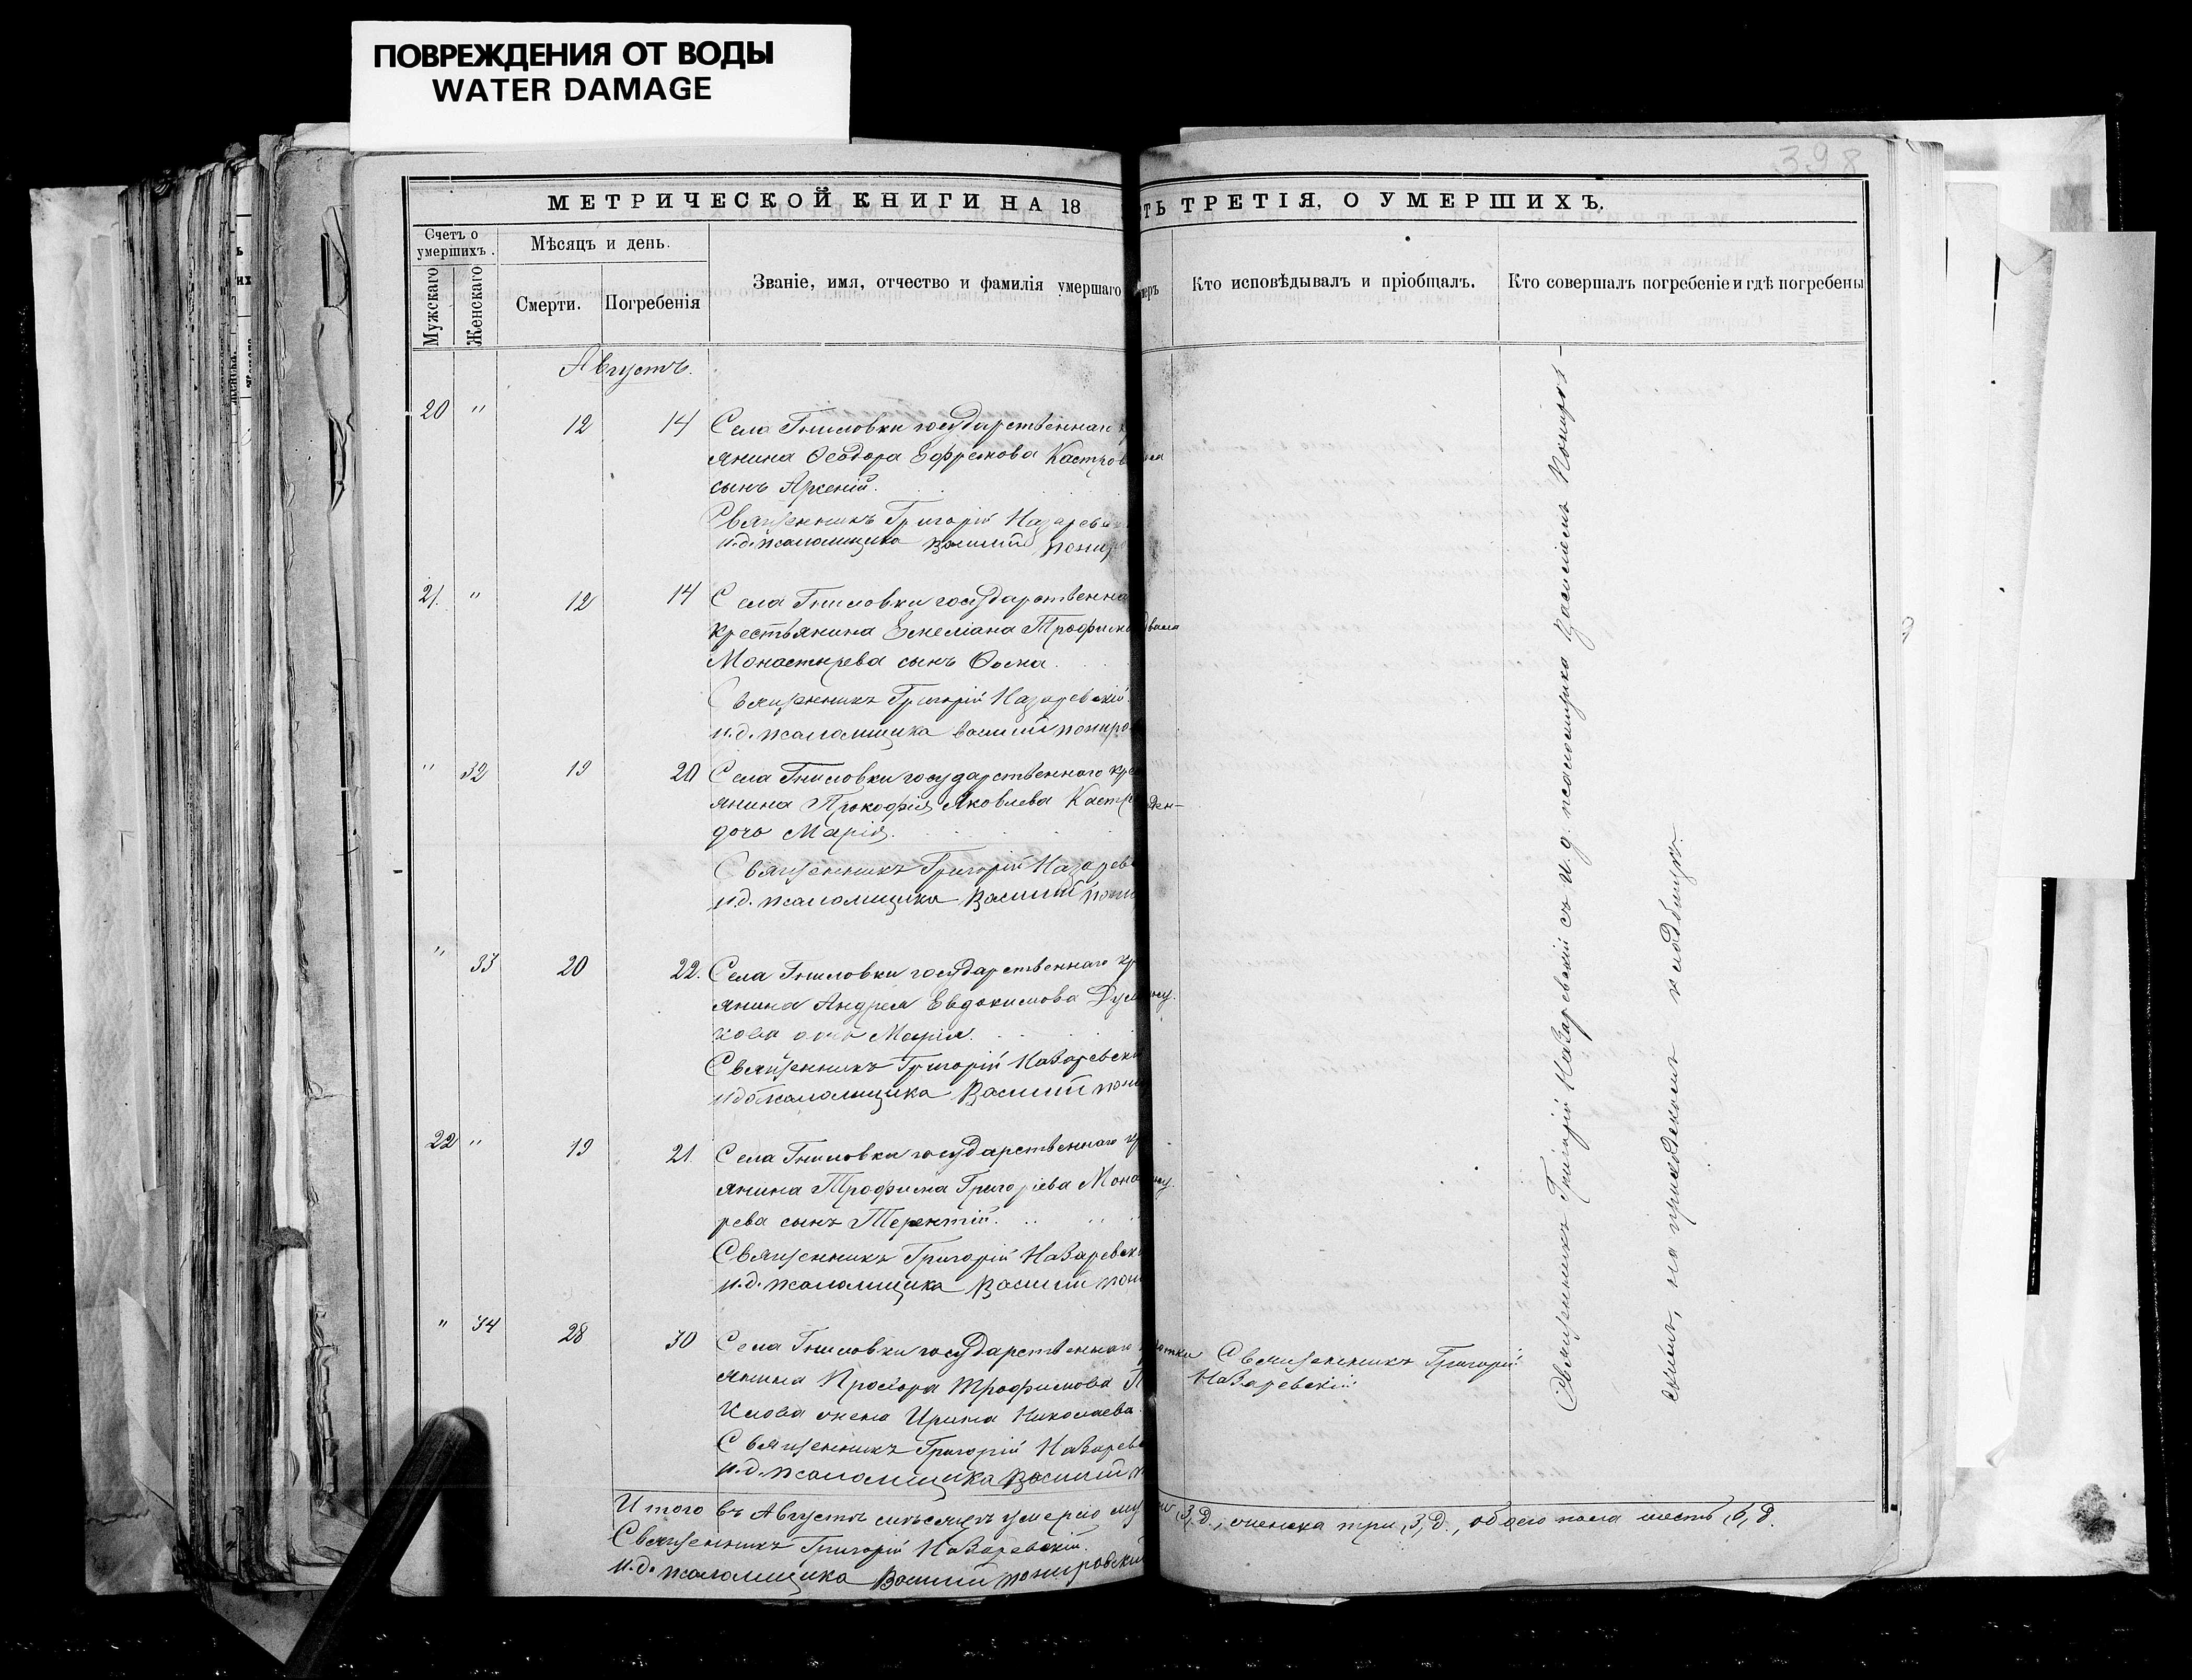 ПОВРЕЖДЕНИЯ ОТ ВОДЫ
WATER DAMAGE
398
МЕТРИЧЕСКОЙ КНИГИ НА 18
ТЬ ТРЕТІЯ, О УМЕРШИХЪ.
Счетъ о умершихъ.
Мужскаго
Женскаго
Мѣсяцъ и день.
Смерти.
Погребенія
Званіе, имя, отчество и фамилія умершаго
Кто исповѣдывалъ и пріобщалъ.
Кто совершалъ погребеніе и гдѣ погребены
Августъ.
20 " 12 14 Села Гниловки государственнаго
янина Ѳеодора Ефремова Кастров
сынъ Арсеній.
Священникъ Григорій Назаревс
и.д. псаломщика Василий Понир
21. " 12 14 Села Гниловки государственна
крестьянина Емеліана Трофимо
Монастырева сынъ Ѳома.
Священникъ Григорій Назаревскій.
и.д. псаломщика Василий Пониро
" 32 19 20 Села Гниловки государственнаго кре
янина Прокофія Яковлева Кастр
дочь Марія.
Священникъ Григорій Назарев
и.д. псаломщика Василий Пони
" 33 20 22. Села Гниловки государственнаго кр
янина Андрея Евдокимова
дочь Марія.
Священникъ Григорій Назаревскі
и.д. псаломщика Василий Пони
22 " 19 21 Села Гниловки государственнаго кр
янина Трофима Григоріева Мона
рева сынъ Терентій.
Священникъ Григорій Назаревск
и.д. псаломщика Василий Пони
" 34 28 30 Села Гниловки государственнаго
янина Прохора Трофимова П
жена Ирина Николаева
Священникъ Григорій Назарев
и.д. псаломщика Василий П
Священникъ Григорій
Назаревскій
Священникъ Григорій Назаревскій съ и.д. псаломщика Василіемъ Пониров-
скимъ, на приходскомъ кладбищѣ.
Итого въ Августѣ мѣсяцѣ умерло му 3, д., женска три, 3, д., обоего пола шесть, 6, д.
Священникъ Григорій Назаревскій.
и.д. псаломщика Василий Понировский